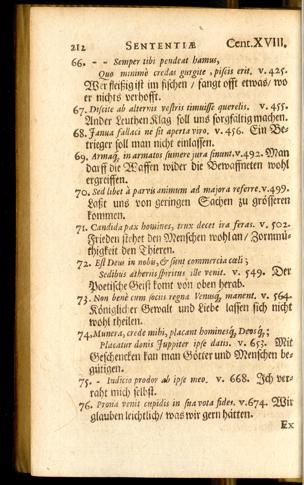 212 SENTENTIÆ Cent. XVIII.
66. - - Semper tibi pendeat hamus,
Quo minimè credas gurgite, piscis erit. v. 425.
Wer fleißig ist im fischen / fangt offt etwas / wo
er nichts verhofft.
67. Discite ab alternis vestris timuisse querelis. v. 455.
Ander Leuthen Klag soll uns sorgfältig machen.
68. Janua fallaci ne sit aperta viro. v. 456. Ein Be-
trieger soll man nicht einlassen.
69. Armaq; in armatos sumere jura sinunt. v. 492. Man
darff die Waffen wider die Bewaffneten wohl
ergreiffen.
70. Sed libet à parvis animum ad majora referre. v. 499.
Laßt uns von geringen Sachen zu grösseren
kommen.
71. Candida pax homines, trux decet ira feras. v. 502.
Frieden stehet den Menschen wohl an / Zornmü-
thigkeit den Thieren.
72. Est Deus in nobis, & sunt commercia cœli;
Sedibus æthereis spiritus ille venit. v. 549. Der
Poetische Geist komt von oben herab.
73. Non benè cum sociis regna Venusq; manent. v. 564.
Königlicher Gewalt und Liebe lassen sich nicht
wohl theilen.
74. Munera, crede mihi, placant hominesq; Deosq;;
Placatur donis Juppiter ipse datis. v. 653. Mit
Geschencken kan man Götter und Menschen be-
gütigen.
75. - Iudicio prodor ab ipse meo. v. 668. Ich ver-
raht mich selbst.
76. Prona venit cupidis in sua vota fides. v. 674. Wir
glauben leichtlich / was wir gern hätten.
Ex